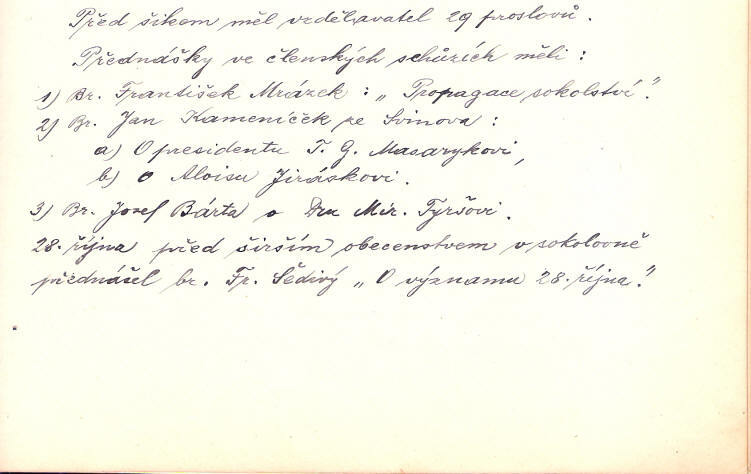 Před šikem měl vzdělavatel 29 proslovů.
Přednášky ve členských schůzích měli:
1) Br. František Mrázek: „Propagace sokolství".
2) Br. Jan Kameníček ze Svinova:
a) O presidentu T. G. Masarykovi,
b) o Aloisu Jiráskovi.
3) Br. Josef Bárta o Dru Mir. Tyršovi.
28. října před širším obecenstvem v sokolovně
přednášel br. Fr. Šedivý „O významu 28. října."